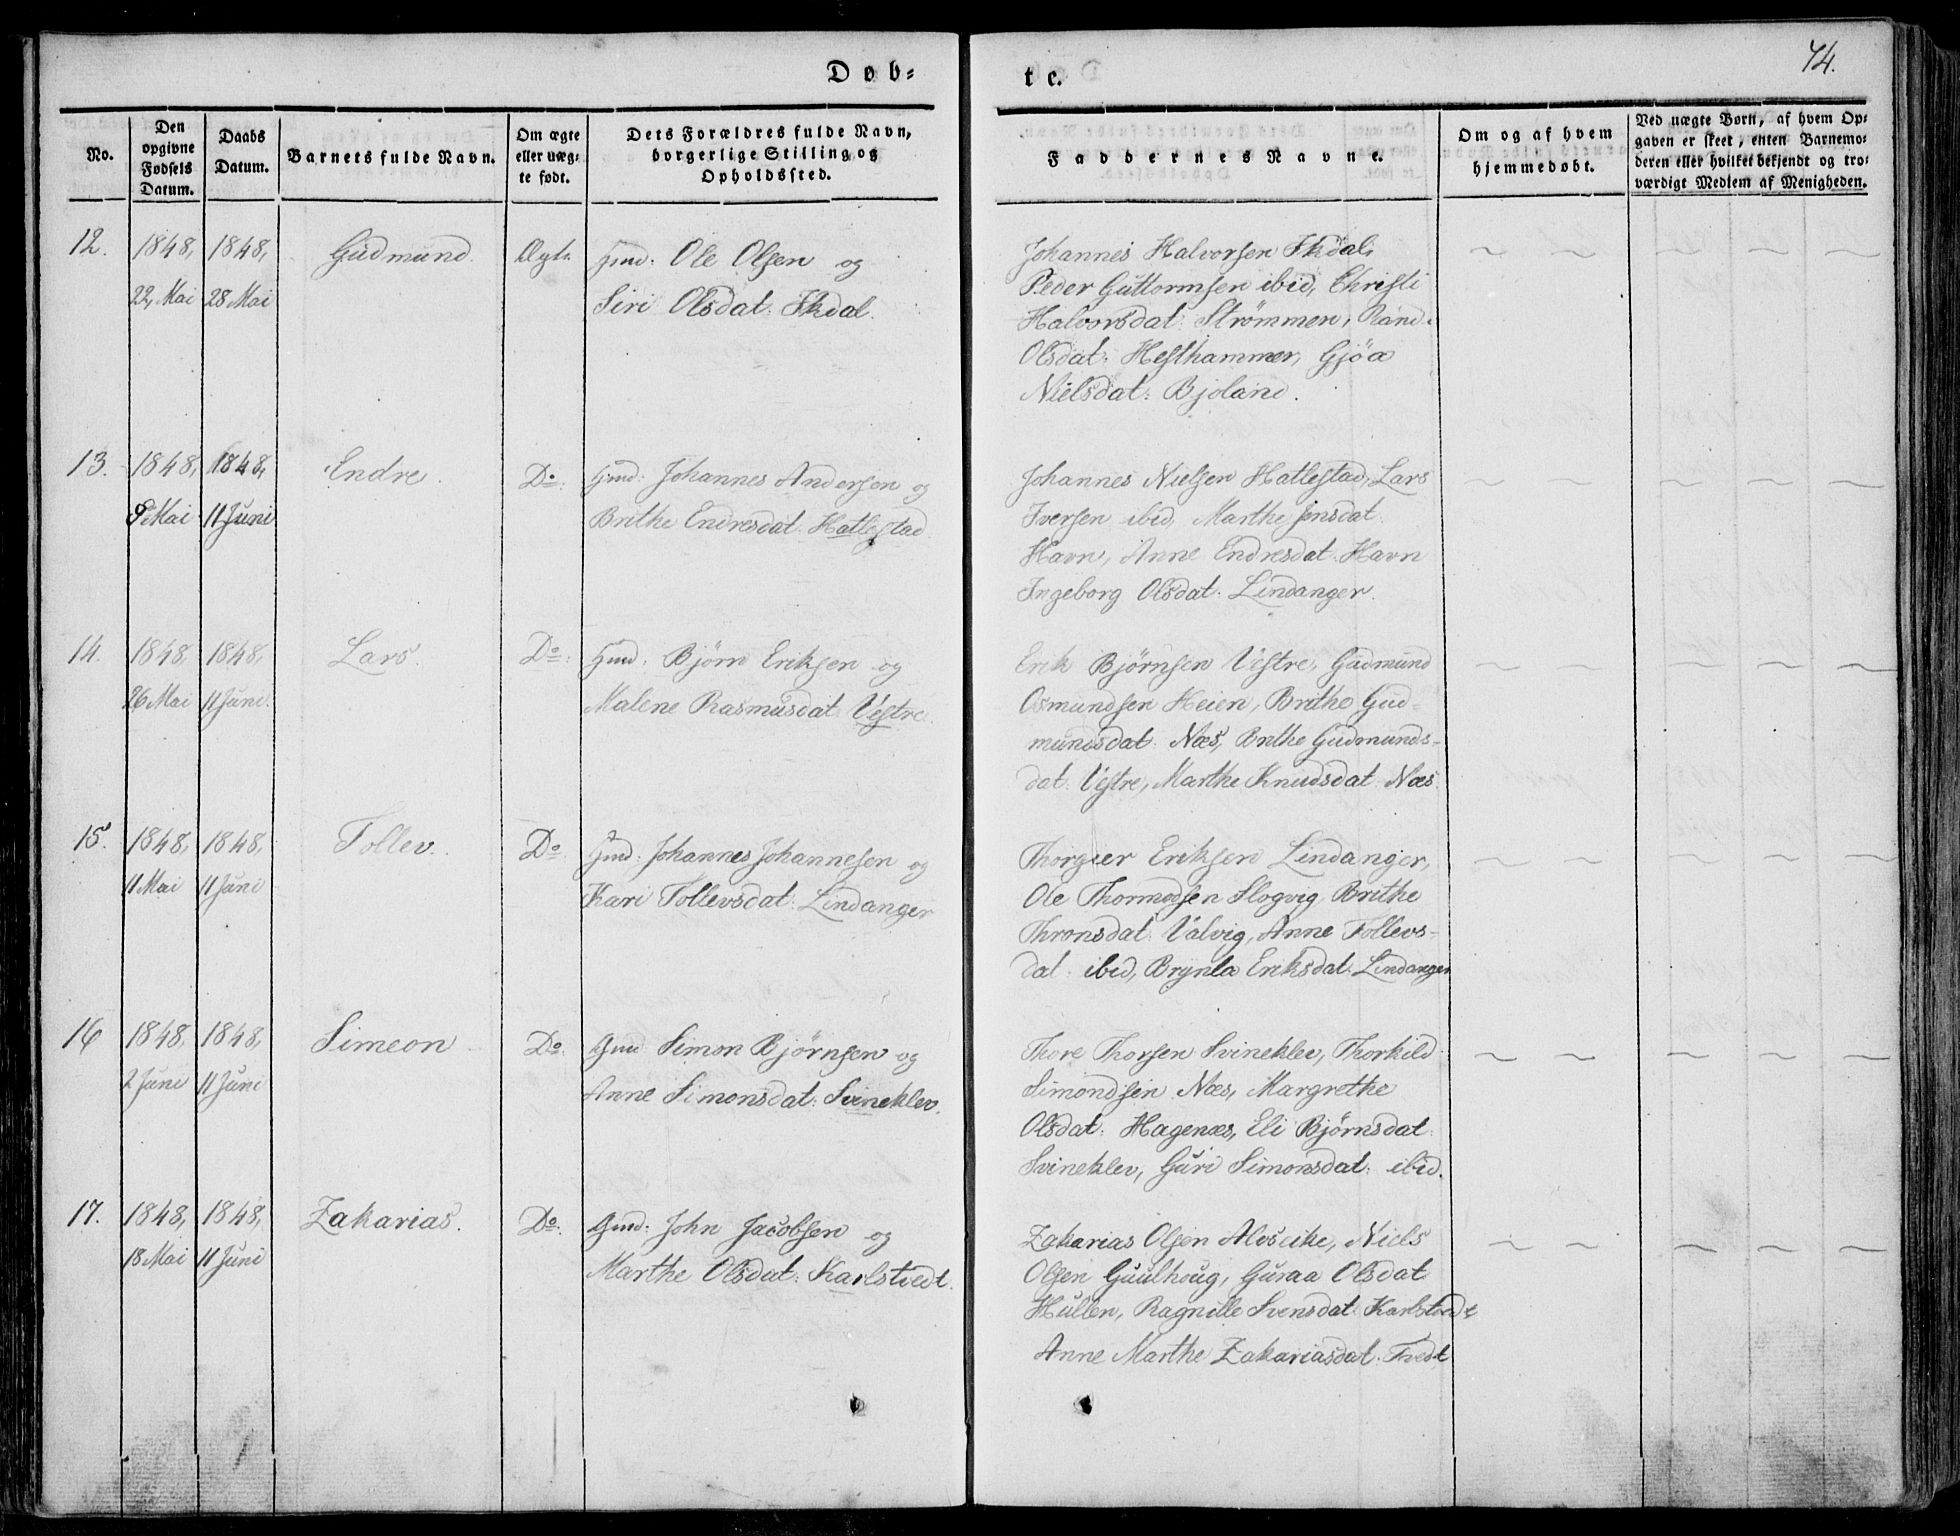 Døb=
te.
74.
No.
Den opgivne Fødsels Datum.
Daabs Datum.
Barnets fulde Navn.
Om ægte eller uæg-te født.
Dets Forældres fulde Navn, borgerlige Stilling og Opholdssted.
Faddernes Navne.
Om og af hvem hjemmedøbt.
Ved uægte Børn, af hvem Op-gaven er skeet, enten Barnemo-deren eller hvilket bekjendt og tro-værdigt Medlem af Menigheden.
12. 1848, 22, Mai 1848, 28 Mai Gudmund. Ægte
Gmd: Ole Olsen og
Siri Olsdat: Skdal.
Johannes Halvorsen Skdal,
Peder Guttormsen ibid, Christi
Halvorsdat: Strømmen, Rand.
Olsdat: Hesthammer, Gjöa
Nielsdat: Bjoland.
13. 1848, 9 Mai 1848, 11 Juni Endre. Do:
Gmd: Johannes Andersen og
Brithe Endresdat: Hatlestad
Johannes Nielsen Hatlestad, Lars
Iversen ibid, Marthe Jensdat:
Havn, Anne Endresdat. Havn
Ingeborg Olsdat. Lindanger.
14. 1848, 26 Mai 1848, 11 Juni. Lars. Do:
Gmd: Bjørn Eriksen og
Malene Rasmusdat: Vestre.
Erik Bjørnsen Vestre, Gudmund
Osmundsen Heien, Brithe Gud-
mundsdat: Næs, Brithe Gudmunds-
dat: Vestre, Marthe Knudsdat Næs
15. 1848, 11 Mai 1848, 11 Juni Tollev. Do:
Gmd: Johannes Johannesen og
Kari Tollevsdat: Lindanger
Thorgier Eriksen Lindanger,
Ole Thormodsen Slogvig, Brithe
Thronsdat: Valvig, Anne Tollevs-
dat: ibid, Brynla Eriksdat: Lindanger
16 1848, 2 Juni 1848, 11 Juni Simeon Do:
Gmd Simon Bjørnsen og
Anne Simonsdat: Svineklev.
Thore Thorsen Svineklev, Thorkild
Simondsen Næs, Margrethe
Olsdat: Hagenæs, Eli Bjørnsdat:
Svineklev, Guri Simonsdat: ibid.
17. 1848, 18 Mai 1848, 11 Juni Zakarias. Do:
Gmd: John Jacobsen og
Marthe Olsdat: Karlstvedt.
Zakarias Olsen Alvseike, Niels
Olsen Guulhoug, Guraa Olsdat
Hullen, Ragnille Svensdat: Karlstvedt
Anne Marthe Zakariasdat. Tvedt